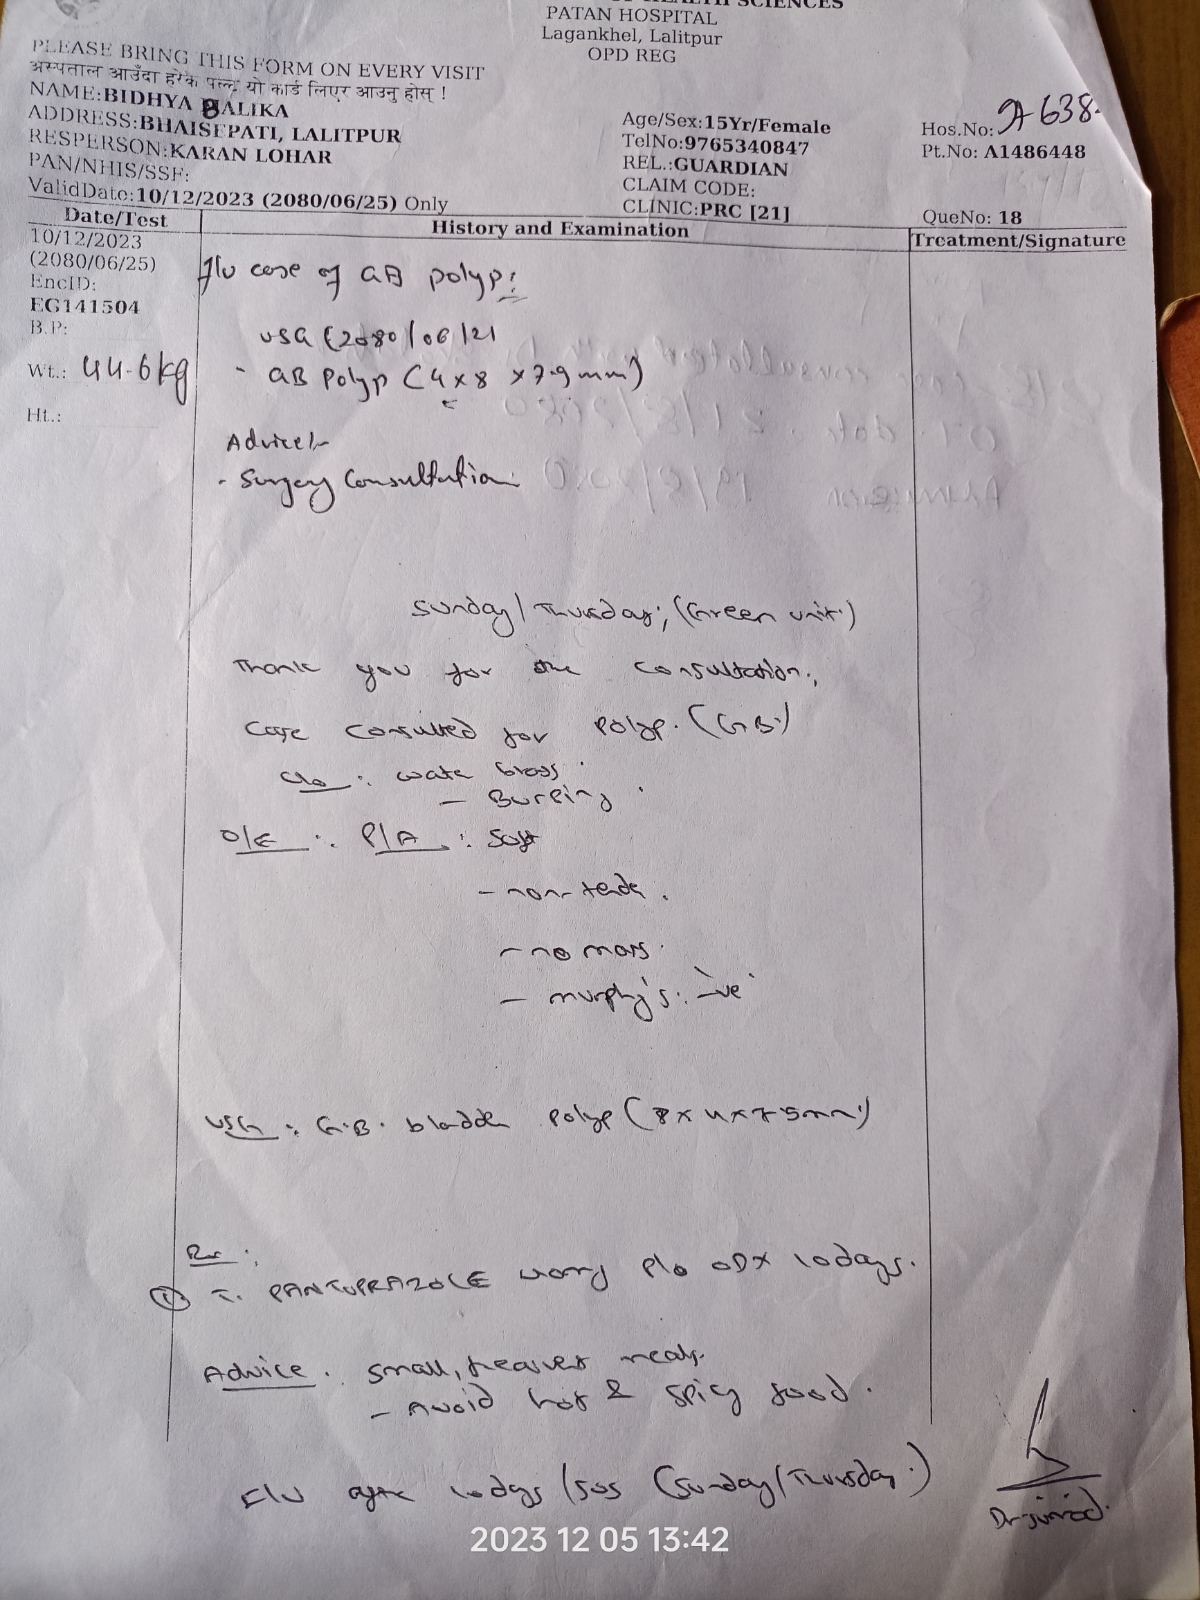 HEALTH SCIENCES
PATAN HOSPITAL
Lagankhel, Lalitpur
OPD REG
PLEASE BRING THIS FORM ON EVERY VISIT
अस्पताल आउँदा हरेक पल्ट यो कार्ड लिएर आउनु होस् !
NAME:BIDHYA BALIKA
ADDRESS:BHAISEPATI, LALITPUR
RESPERSON:KARAN LOHAR
PAN/NHIS/SSF:
ValidDate:10/12/2023 (2080/06/25) Only
Age/Sex:15Yr/Female
TelNo:9765340847
REL.:GUARDIAN
CLAIM CODE:
CLINIC:PRC [21]
Hos.No: A638
Pt.No: A1486448
QueNo: 18
Date/Test
History and Examination
Treatment/Signature
10/12/2023
(2080/06/25)
EncID:
EG141504
B.P:
Wt.: 44.6kg
Ht.:
f/u case of GB polyp:
USG (2080/06/21
- GB Polyp (4x8 x7.9mm)
Advice:-
- Surgery Consultation
Sunday/Thursday; (Green unit)
Thank you for the consultation,
Case consulted for polyp. (G.B.)
c/o : water brass
- Burping
O/E : P/A : soft
- non-tender.
- no mass.
- murphy's: -ve
USG : G.B. bladder polyp (8x4x7.9mm)
Rx :
① T. PANTOPRAZOLE 40mg P/o OD x 10days.
Advice : small, frequent meals.
- Avoid hot & spicy food.
F/U after 10days /SOS (Sunday/Thursday.)
2023 12 05 13:42